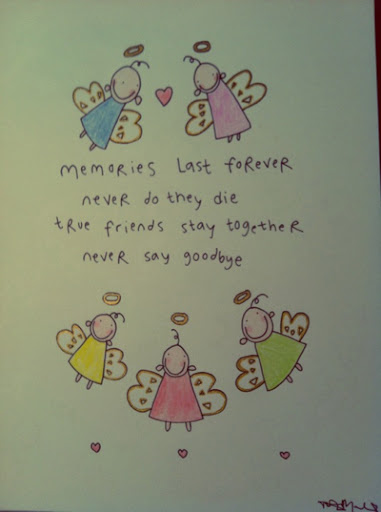 memories last forever
never do they die
true friends stay together
never say goodbye